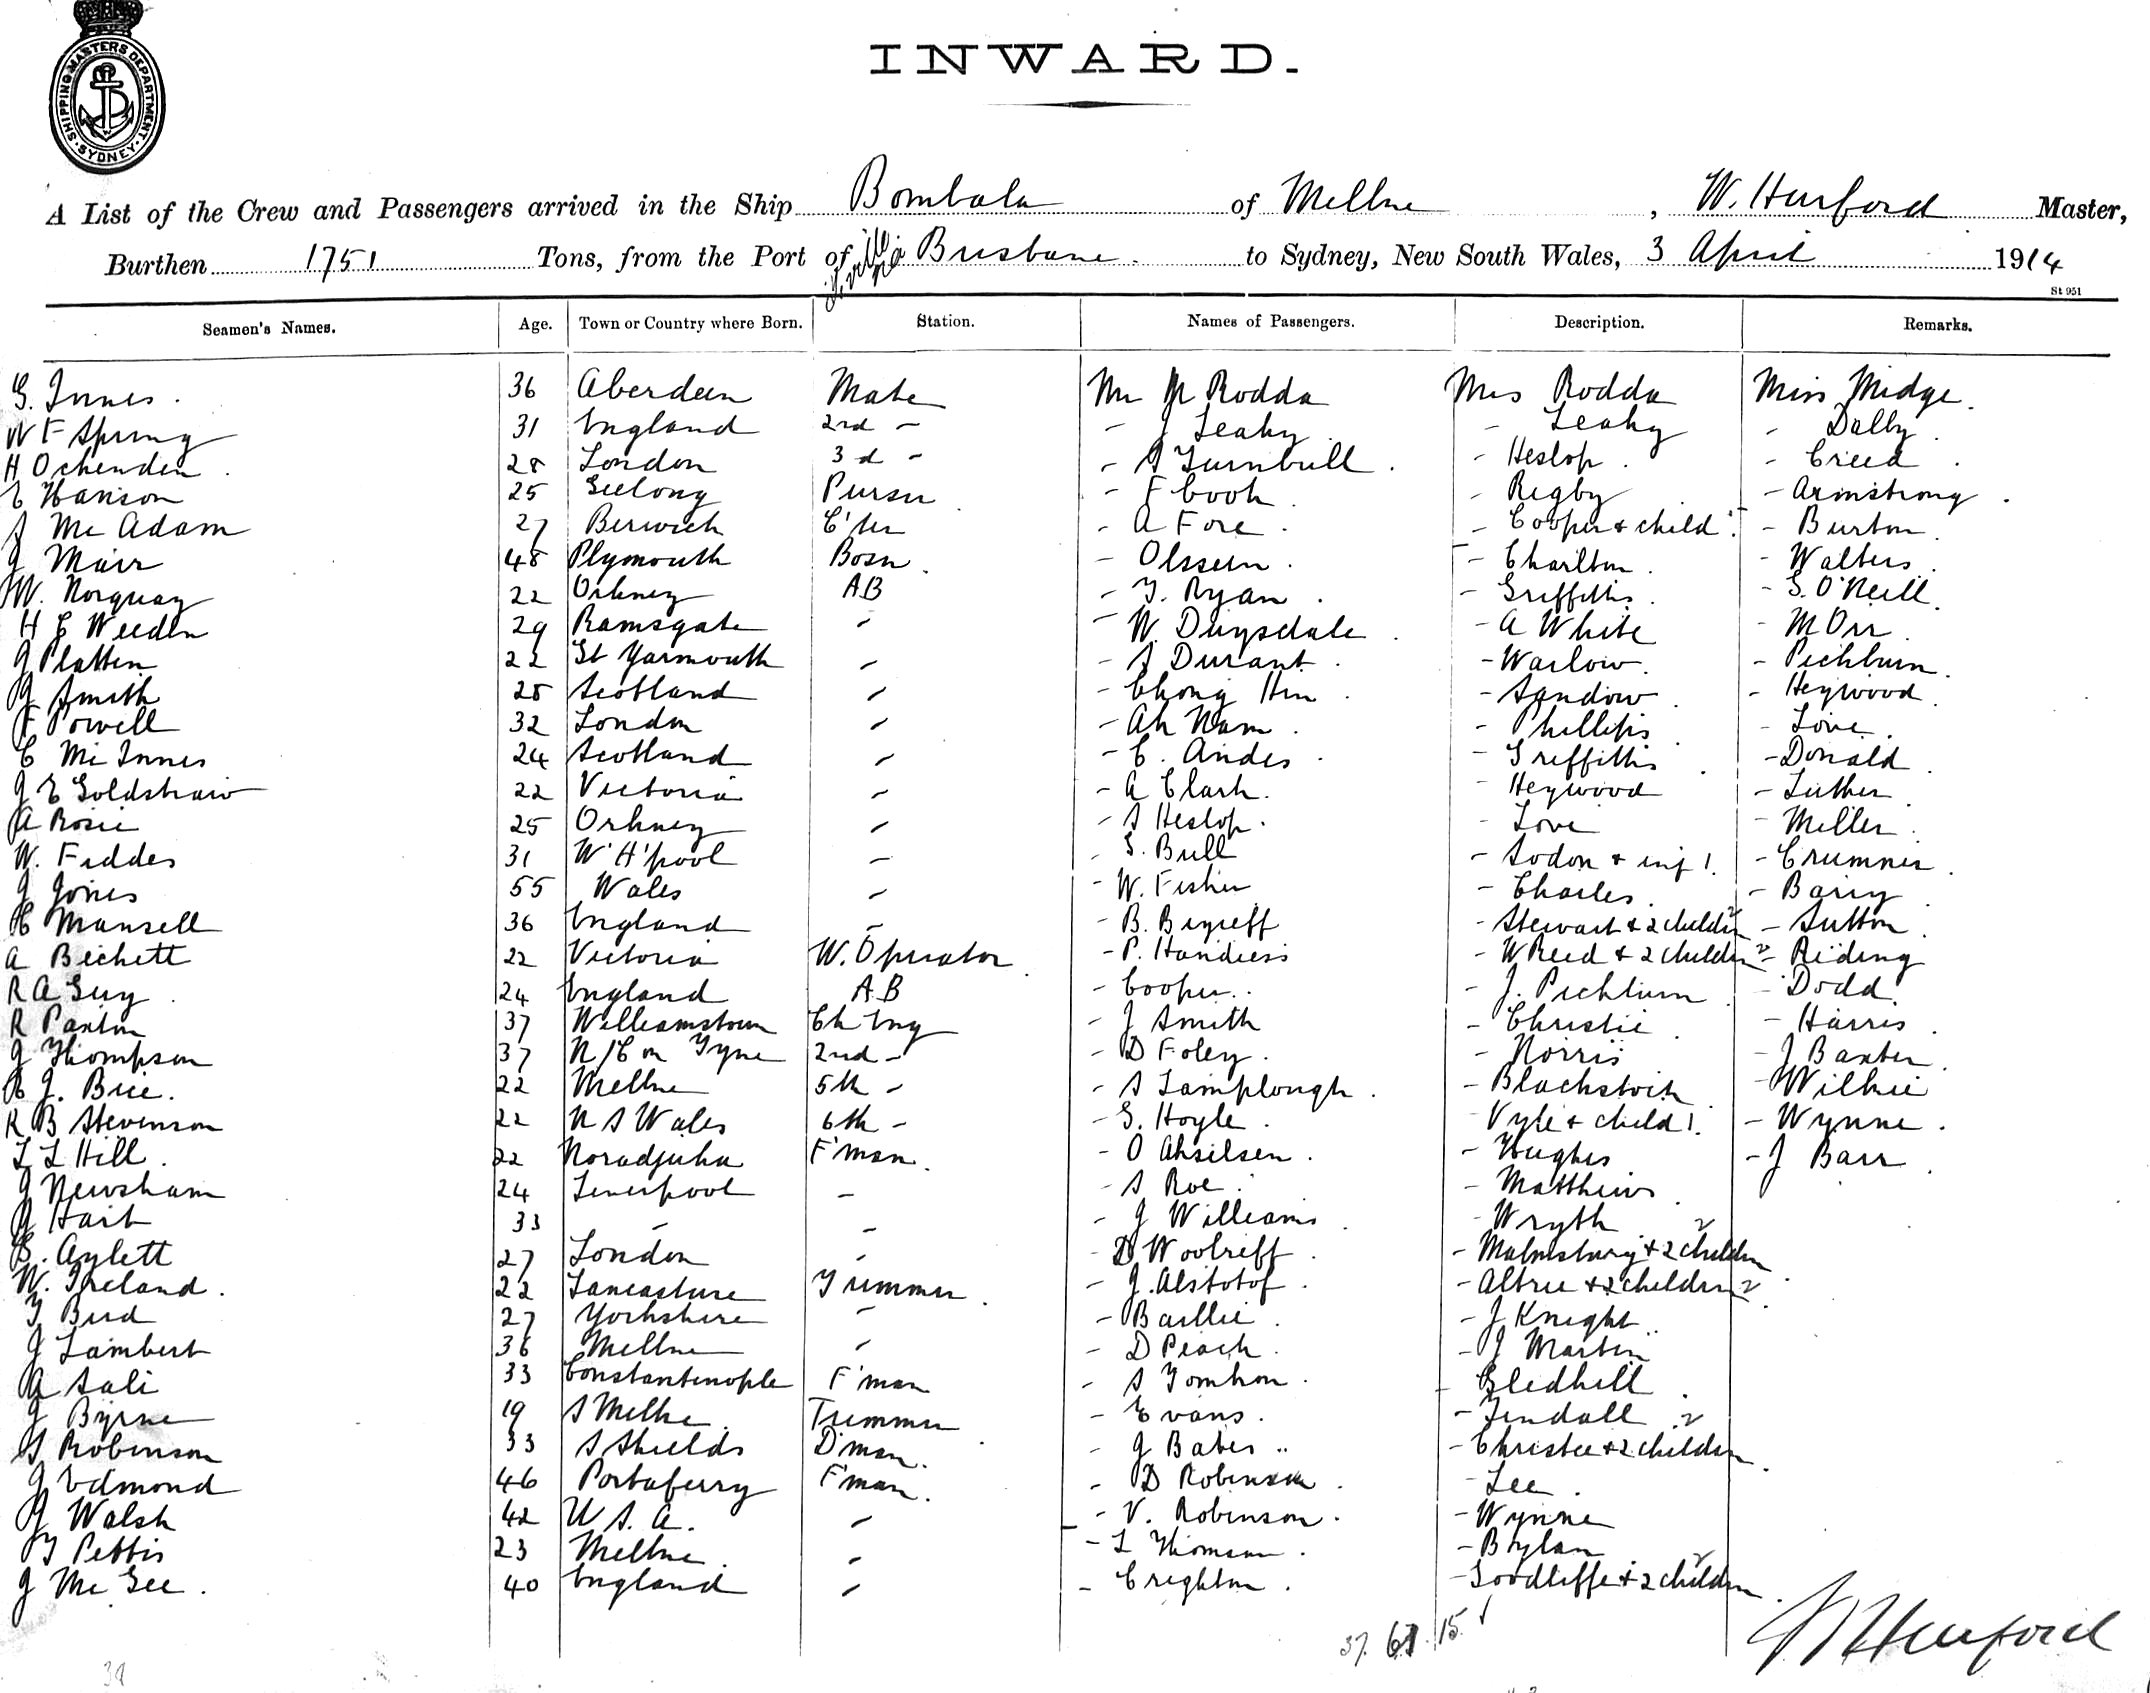 SHIPPING MASTERS DEPARTMENT · SYDNEY ·
INWARD.
A List of the Crew and Passengers arrived in the Ship Bombala of Melbne, W. Hurford Master,
Burthen 1751 Tons, from the Port of Brisbane to Sydney, New South Wales, 3 April 1914
St 951
Seamen's Names. Age. Town or Country where Born. Station. Names of Passengers. Description. Remarks.
G. Innes. 36 Aberdeen Mate Mr M Rodda Mrs Rodda Miss Midge.
W F Spring 31 England 2nd - - J Leahy - Leahy - Dalby.
H Ochenden. 28 London 3d - - S Turnbull. - Heslop. - Creed.
E Hanson 25 Geelong Purser - F Cook. - Rigby - Armstrong.
S Mc Adam 27 Berwick C'ter - A Fore. - Cooper & child 1. - Burton.
J Mair 48 Plymouth Bosn. - Olssen. - Charlton. - Walters.
W. Norquay 22 Orkney AB - T. Ryan. - Griffiths. - G. O'Neill.
H E Weeden 29 Ramsgate - - W. Drysdale. - A White - M Orr.
J Platten 22 Gt Yarmouth - - S Durant. - Warlow. - Pichburn.
J Smith 28 Scotland - - Chong Hin. - Sandow. - Heywood.
F Powell 32 London - - Ah Nam. - Phillips. - Love.
C Mc Innes 24 Scotland - - C. Andes. - Griffiths. - Donald.
J E Goldstraw 22 Victoria - - A Clark. - Heywood - Luther.
A Rosie 25 Orkney - - S Heslop. - Love - Miller.
W. Fiddes 31 W'H'pool - - G. Bull - Sodon & inf 1. - Crumner.
J Jones 55 Wales - - W. Fisher - Charles. - Barry
H Mansell 36 England - - B. Beyreff - Stewart & 2 childrn 2 - Sutton.
A Bickett 22 Victoria W. Operator. - P. Handiess - W Reed & 2 childrn 2 - Riding
R A Guy. 24 England AB - Cooper.. - J. Pichburn. - Dodd.
R Paxton 37 Williamstown Ch Eng - J Smith - Christie. - Harris.
J Thompson 37 N/C on Tyne 2nd - - D Foley. - Norris - J Baxter.
R J. Bice. 22 Melbne 5th - - S Lamplough. - Blackstock - Wilkie
R B Stevenson 22 N S Wales 6th - - G. Hoyle. Vyle & child 1. - Wynne.
L L Hill. 22 Noradjuha F'man. - O Ahsilsen. - Hughes - J Barr.
J Newsham 24 Liverpool - - S Roe. - Matthews.
J Hart 33 - - - J Williams. - Wryth 2
B. Aylett 27 London - - D Woolreff. - Malmsbury & 2 childrn.
W. Ireland. 22 Lancashire Trimmer. - J. Alstotof. - Altree & 2 children 2.
T Bird 27 Yorkshire - - Baillie. - J Knight..
J Lambert 36 Melbne - - D Peach. - J Martin
A Sali 33 Constantinople F'man - S Tomkon. - Gledhill.
J Byrne 19 S Melbne. Trimmer. - Evans. - Tendall. 2
S Robinson 33 S Shields D'man. - J Bates.. - Christee & 2 childrn.
J Edmond 46 Portaferry F'man. - D Robinson. - Lee.
J Walsh 42 U. S. A. - - V. Robinson. - Wynne
T Pettis 23 Melbne. - - L Thomson. - Boylan 2
J Mc Gee. 40 England - - Crighton. - Goodliffe & 2 childrn.
37. 61. 15.
W Hurford